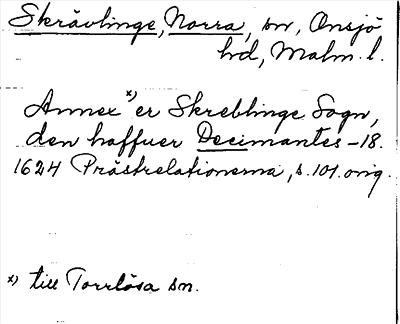 Skrävlinge, Norra, sn, Onsjö
hd, Malm. l.
Annex *) er Skreblinge Sogn,
den haffuer Decimantes -18.
1624 Prästrelationerna, s. 101. orig.
*) till Torrlösa sn.